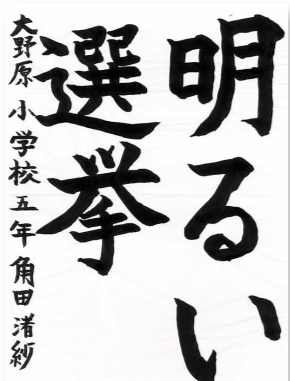 明るい
選挙
大野原小学校五年角田渚紗